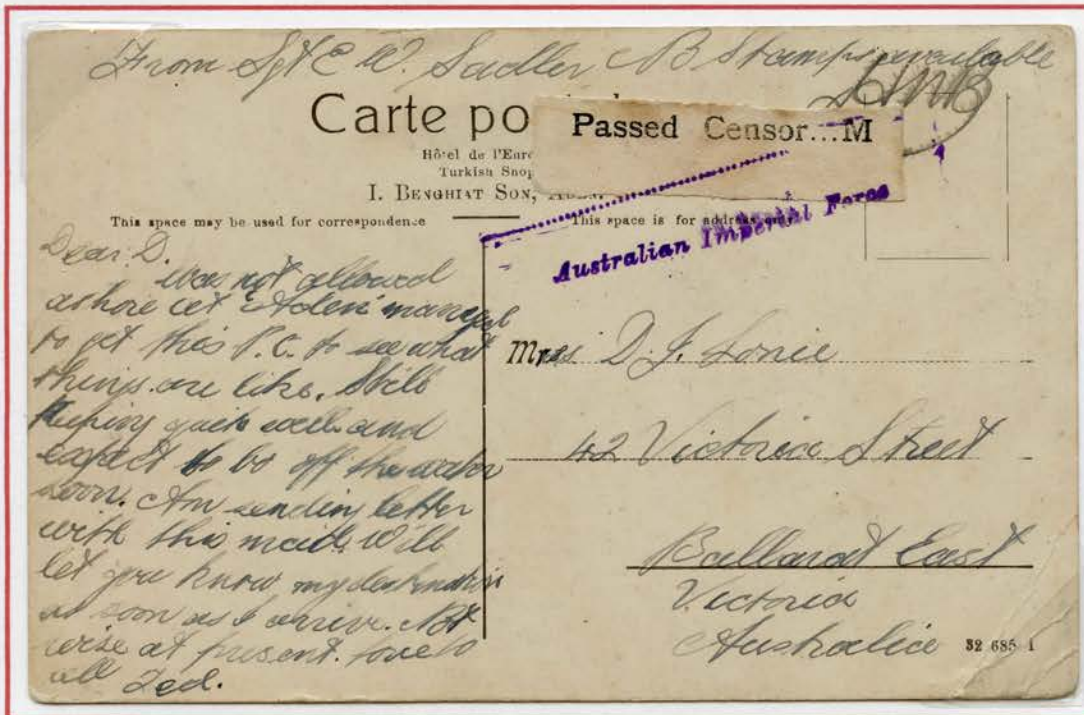 From Sgt E W. Sadler No Stamps available
Carte po
Passed Censor...M
Hôtel de l'Euro
Turkish Shop
I. BENGHIAT SON,
Australian Imperial Force
This space may be used for correspondence
This space is for address only
Dear D.
Was not allowed
ashore at "Aden" managed
to get this P.C. to see what
things are like. Still
keeping quite well and
expect to be off the water
soon. Am sending letter
with this mail. Will
let you know my destination
as soon as I arrive. Not
wise at present. Love to
all Ted.
Mrss D. J. Lonie
42 Victoria Street
Ballarat East
Victoria
Australia
32 685 1